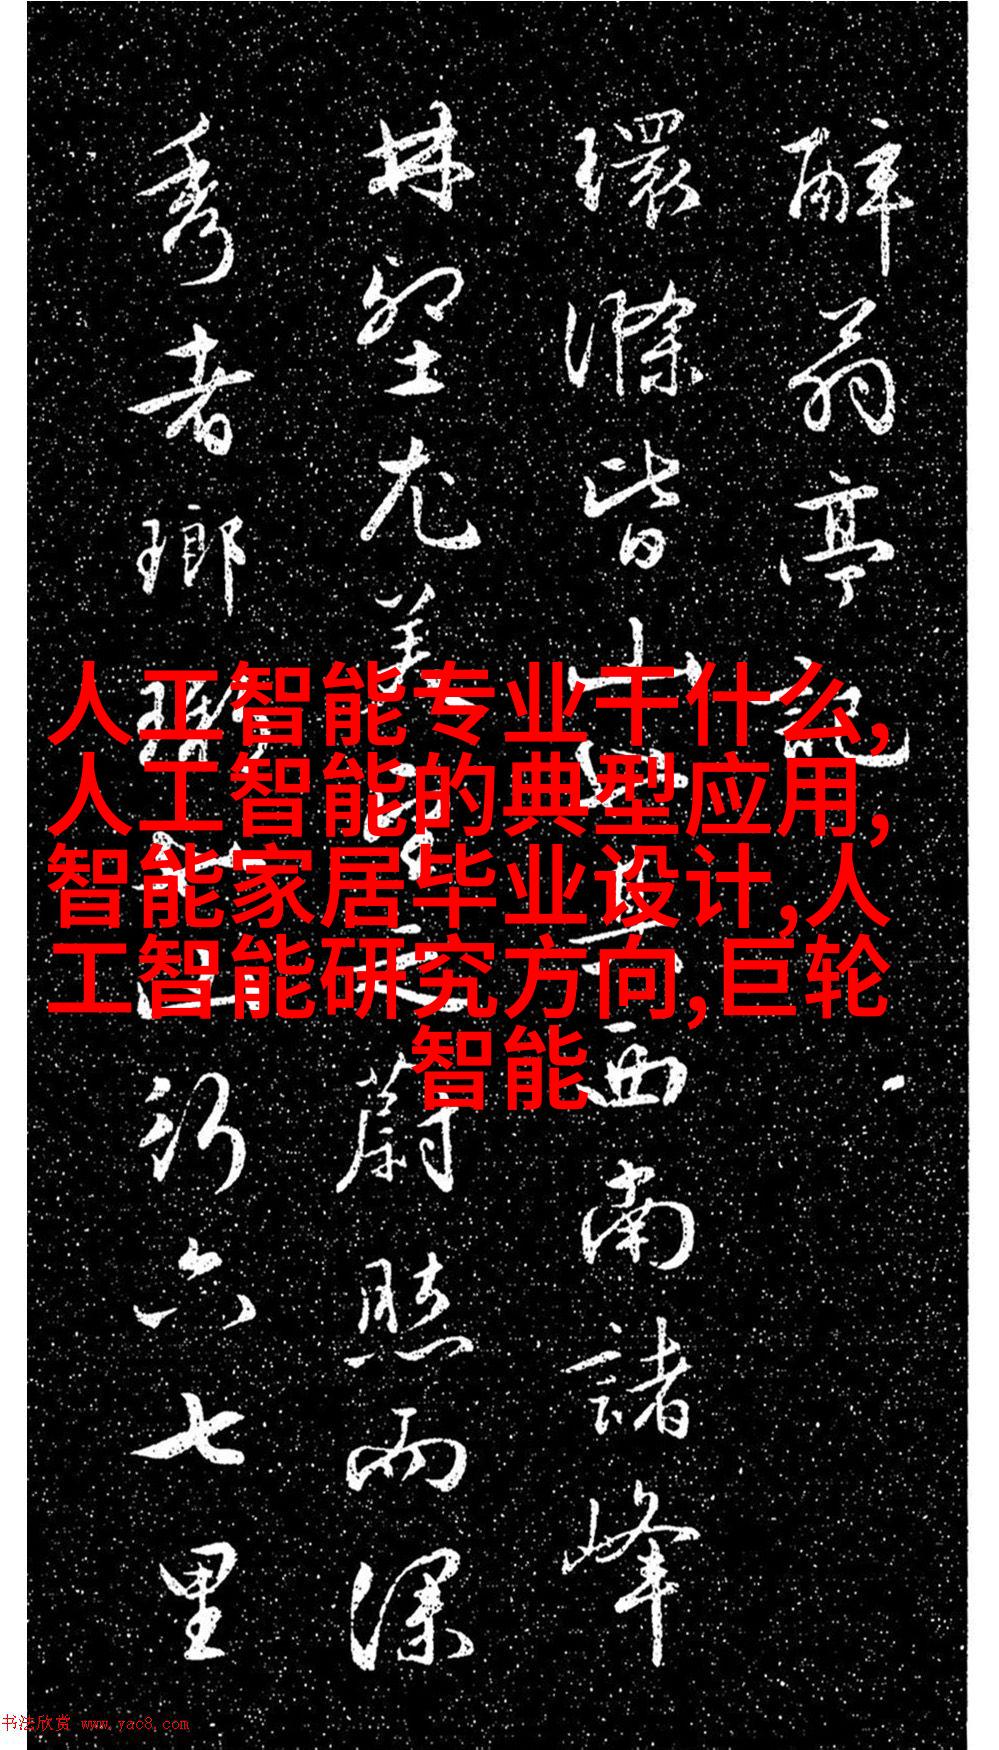 醉翁亭記
環滁皆山也其西南諸峰
林壑尤美望之蔚然而深
秀者瑯琊也山行六七里
人工智能专业干什么,
人工智能的典型应用,
智能家居毕业设计,人
工智能研究方向,巨轮
智能
书法欣赏 www.yac8.com